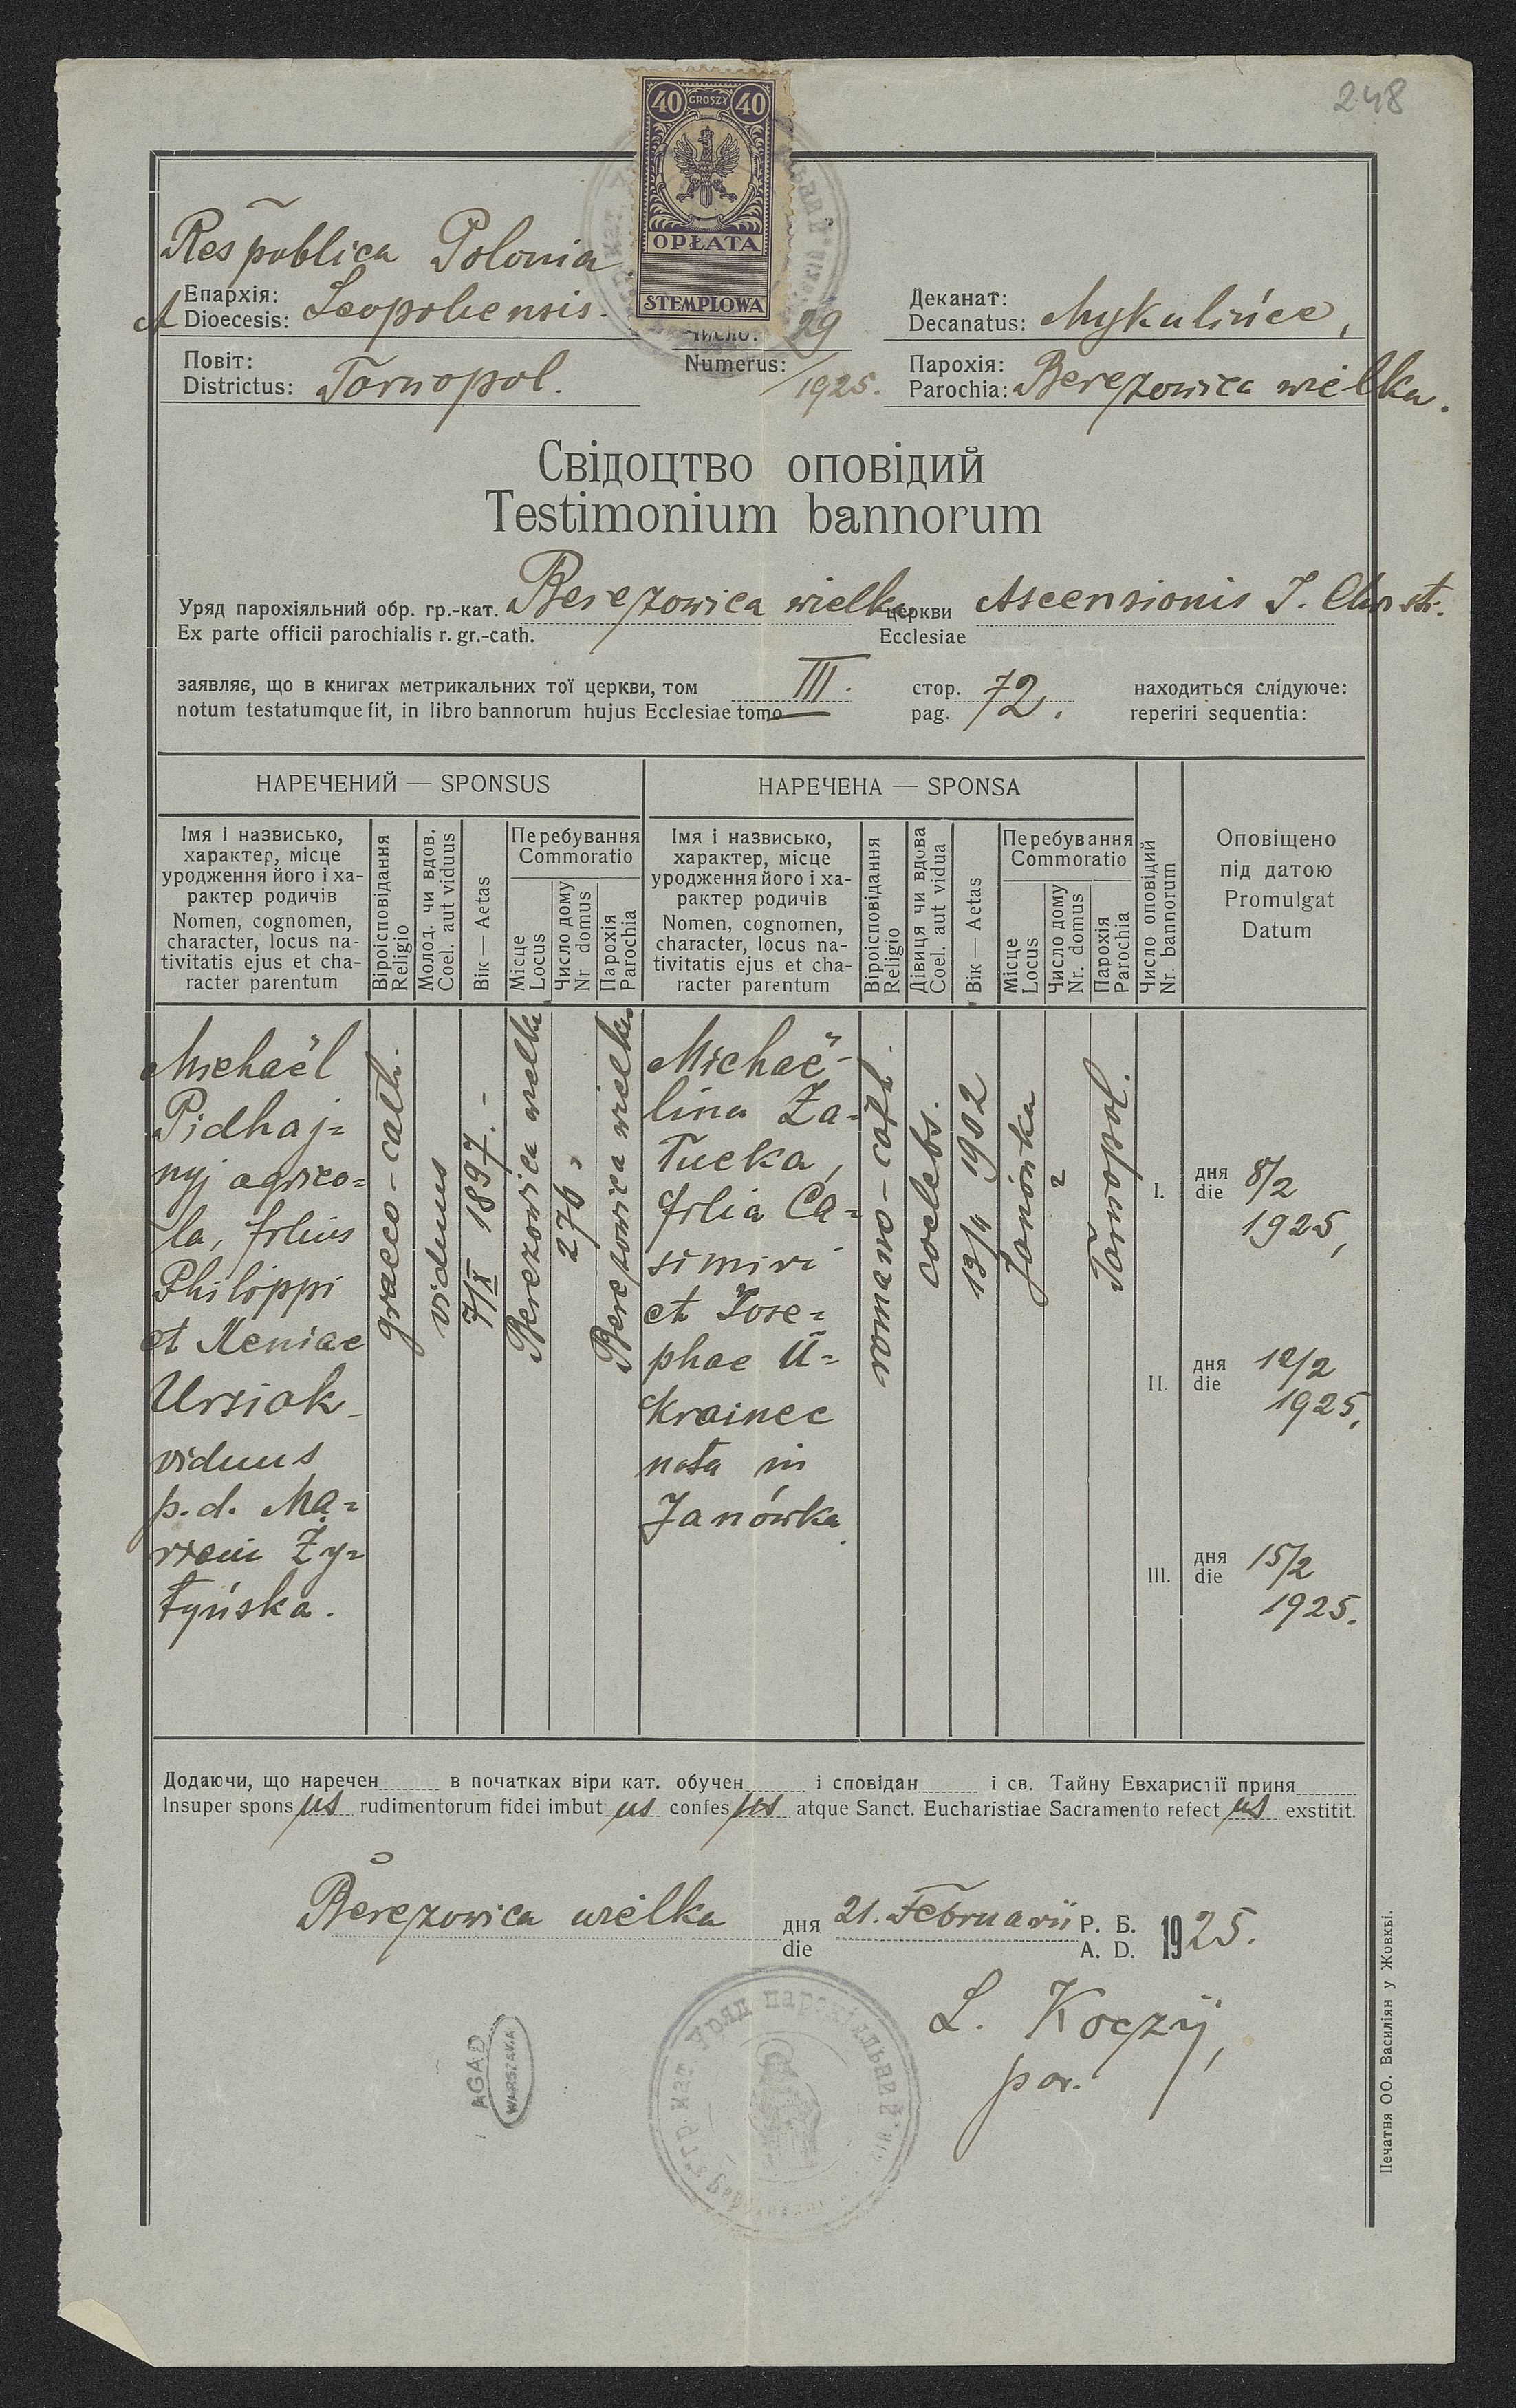 248
40 GROSZY 40
OPŁATA
STEMPLOWA
Respublica Polonia
Епархія:
A Dioecesis: Leopoliensis.
Число: 29
Numerus: /1925.
Деканат:
Decanatus: Mykulińce,
Повіт:
Districtus: Tarnopol.
Парохія:
Parochia: Berezowica wielka.
Свідоцтво оповідий
Testimonium bannorum
Уряд парохіяльний обр. гр.-кат. Berezowica wielka церкви Ascensionis J. Christi.
Ex parte officii parochialis r. gr.-cath. Ecclesiae
заявляє, що в книгах метрикальних тої церкви, том III. стор. 72. находиться слідуюче:
notum testatumque fit, in libro bannorum hujus Ecclesiae tomo pag. reperiri sequentia:
НАРЕЧЕНИЙ — SPONSUS
НАРЕЧЕНА — SPONSA
Імя і назвисько,
характер, місце
уродження його і ха-
рактер родичів
Nomen, cognomen,
character, locus na-
tivitatis ejus et cha-
racter parentum
Віроісповідання
Religio
Молод. чи вдов.
Coel. aut viduus
Вік — Aetas
Перебування
Commoratio
Місце
Locus
Число дому
Nr domus
Парохія
Parochia
Імя і назвисько,
характер, місце
уродження його і ха-
рактер родичів
Nomen, cognomen,
character, locus na-
tivitatis ejus et cha-
racter parentum
Віроісповідання
Religio
Дівиця чи вдова
Coel. aut vidua
Вік — Aetas
Перебування
Commoratio
Місце
Locus
Число дому
Nr. domus
Парохія
Parochia
Число оповідий
Nr. bannorum
Оповіщено
під датою
Promulgat
Datum
Michaël
Pidhaj=
nyj agrico=
la, filius
Philippi
et Xeniae
Ursiak
viduus
p. d. Ma=
riam Ży=
tyńska.
graeco-cath.
viduus
7/X 1897.-
Berezowica wielka
276
Berezowica wielka
Michaë-
lina Za=
łucka,
filia Ca=
simiri
et Jose=
phae U=
krainec
nata in
Janówka
romano-cath.
coelebs.
13/4 1902
Janówka
2
Tarnopol.
I. дня
die 8/2
1925,
II. дня
die 12/2
1925,
III. дня
die 15/2
1925.
Додаючи, що наречен в початках віри кат. обучен і сповідан і св. Тайну Евхаристії приня
Insuper spons us rudimentorum fidei imbut us confes sus atque Sanct. Eucharistiae Sacramento refect us exstitit.
Berezowica wielka дня 21. Februarii Р. Б. 1925.
die A. D.
L. Koczij,
par.
AGAD
WARSZAWA
Уряд парохіальний
гр. кат.
Печатня ОО. Василіян у Жовкві.